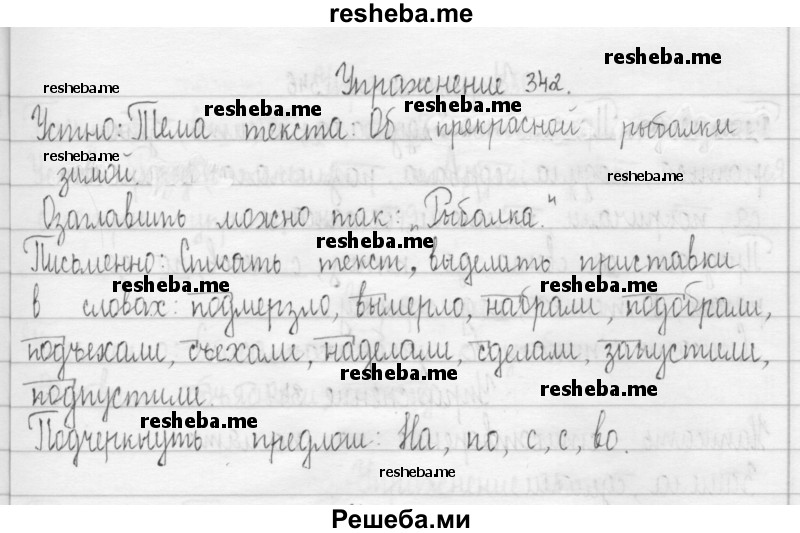 resheba.me
resheba.me
resheba.me
Упражнение 342.
resheba.me
Устно: Тема текста: Об прекрасной рыбалки
resheba.me
зимой.
resheba.me
Озаглавить можно так: „Рыбалка."
resheba.me
Письменно: Списать текст, выделить приставки
resheba.me
resheba.me
в словах: подмерзло, вымерло, набрали, подобрали,
подъехали, съехали, наделали, сделали, запустили,
resheba.me
resheba.me
подпустили.
resheba.me
Подчеркнуть предлоги: На, по, с, с, во.
resheba.me
Решеба.ми